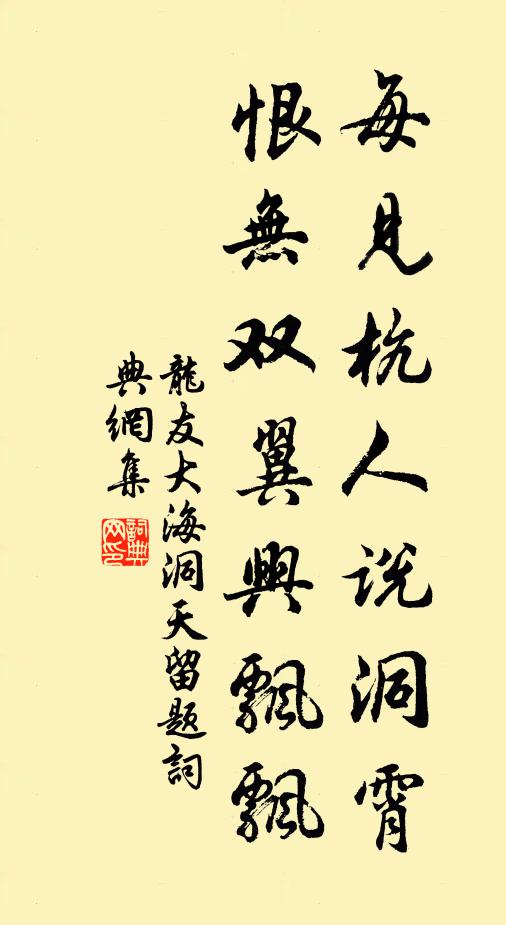 每見杭人说洞霄
恨無双翼興飄飄
龍友大海洞天留題詞
典網集
詞典网印